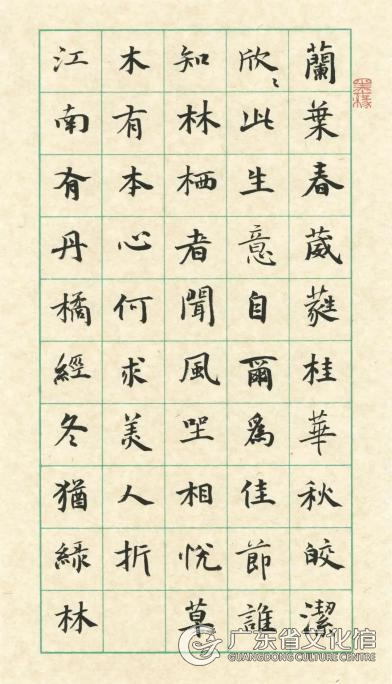 蘭葉春葳蕤桂華秋皎潔
欣〻此生意自爾爲佳節誰
知林栖者聞風坐相悅草
木有本心何求美人折
江南有丹橘經冬猶綠林
广东省文化馆
GUANGDONG CULTURE CENTRE